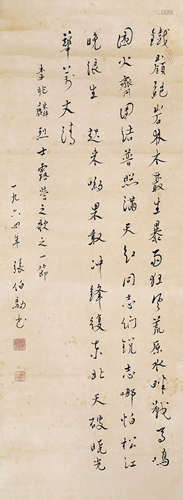 鐵嶺絕岩林木叢生暴雨狂風荒原水畔戰馬鳴
圍火齊團結普照滿天紅同志們銳志哪怕松江
晚浪生 起來呦果敢冲鋒復東北天破曉光
華萬丈湧
李兆麟烈士露營之歌之一節
一九六四年 張伯 書